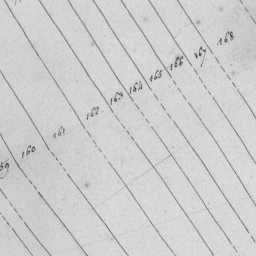 160
161
162
163
164
165
166
167
168